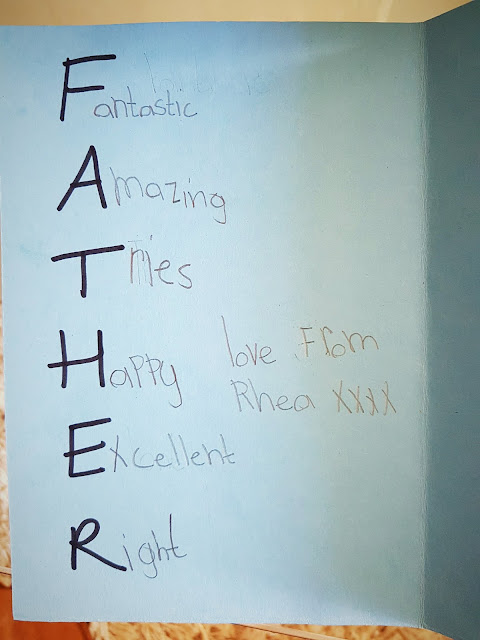 Fantastic
Amazing
Tries
Happy
love From
Rhea xxxx
Excellent
Right